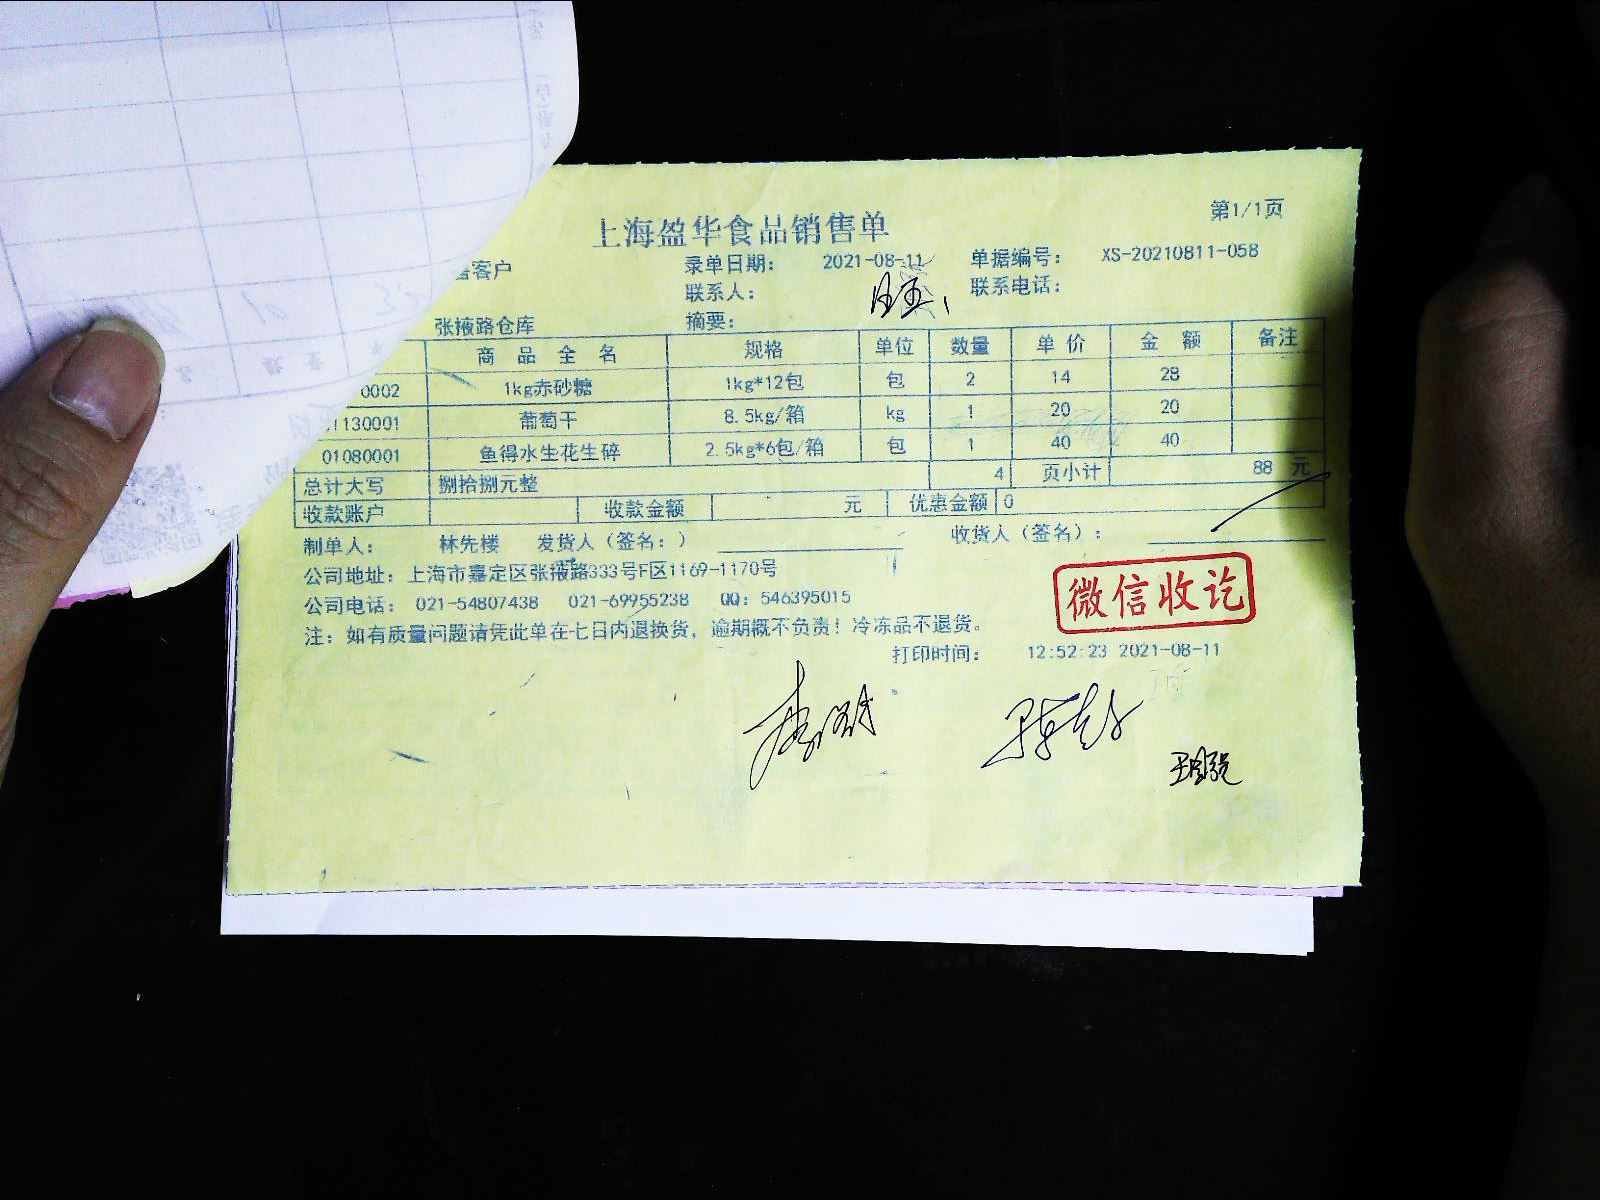 上海盈华食品销售单
第1/1页
客户 录单日期： 2021-08-11 单据编号： XS-20210811-058
联系人： 联系电话：
张掖路仓库 摘要：
商品全名 规格 单位 数量 单价 金额 备注
0002 1kg赤砂糖 1kg*12包 包 2 14 28
1130001 葡萄干 8.5kg/箱 kg 1 20 20
01080001 鱼得水生花生碎 2.5kg*6包/箱 包 1 40 40
总计大写 捌拾捌元整 4 页小计 88 元
收款账户 收款金额 元 优惠金额 0
制单人： 林先楼 发货人（签名：） 收货人（签名）：
公司地址：上海市嘉定区张掖路333号F区1169-1170号
公司电话： 021-54807438 021-69955238 QQ：546395015
微信收讫
注：如有质量问题请凭此单在七日内退换货，逾期概不负责！冷冻品不退货。
打印时间： 12:52:23 2021-08-11